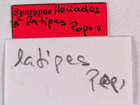 Syntypus Heriades
♂ latipes
Popov
latipes
Pop.